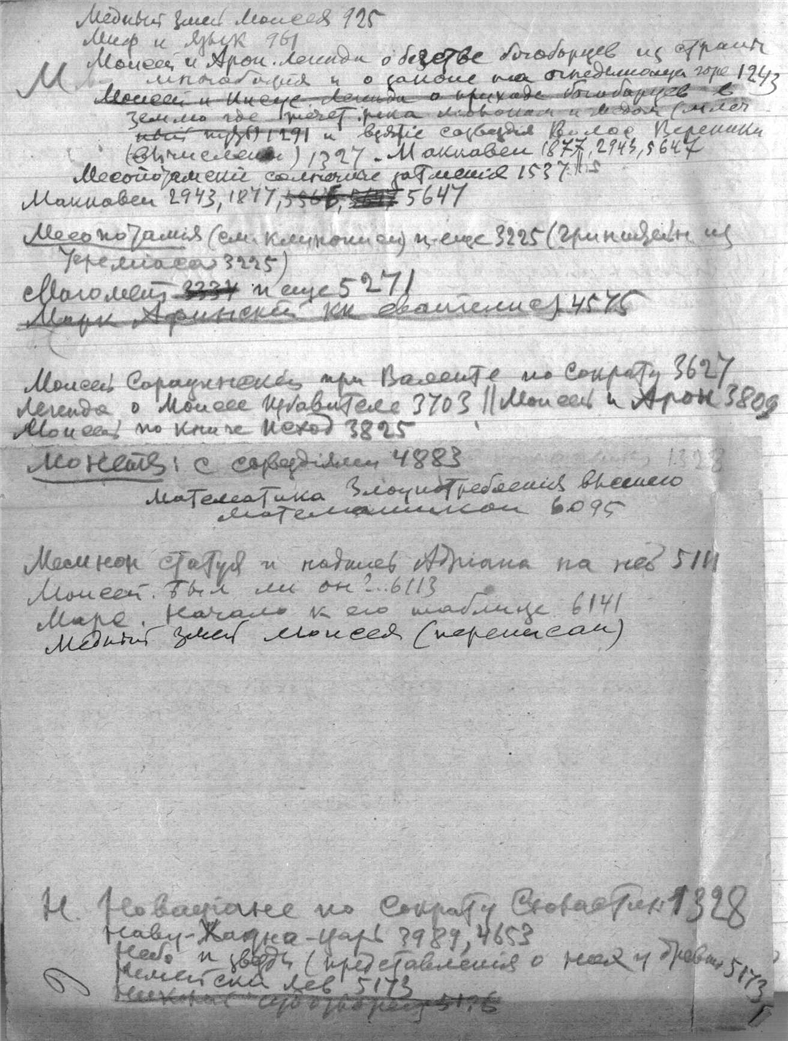 Медный змей Моисея 925
Миф и язык 961
Моисей и Арон. Легенда о бегстве богоборцев из страны
М и о законе на огнедышащей горе 1243
Моисей и Иисус. Легенда о приходе богоборцев в
землю где течет река молоком и медом (млеч
ный путь) 1291 и взятие созвездия Волос Вероники
(вычислен ) 1327 - Маккавеи 1877, 2943, 5647
Месопотамские солнечные затмения 1537
Маккавеи 2943, 1877, 5647
Месопотамия (см. клинописи) и еще 3225 (Гринцейн из
Иеремиаса 3225)
Магомет 3334 и еще 5271
Марк Афинский кн 4575
Моисей при Валенте по Сократу 3627
Легенда о Моисее Избавителе 3703 || Моисей и Арон 3809
Моисей по книге Исход 3825
Монеты с созвездиями 4883
Математика Злоупотребления высшею
математикой 6095
Мемнон статуя и надпись Адриана на ней 5111
Моисей. Был ли он?.. 6113
Марс. Начало к его таблице 6141
Медный змей Моисея (переписан)
Н. Новациане по Сократу Схоластику 1328
Наву-Хадна-царь 3989, 4653
Небо и звезды (представления о нея у древн 5173
Немейский лев 5173